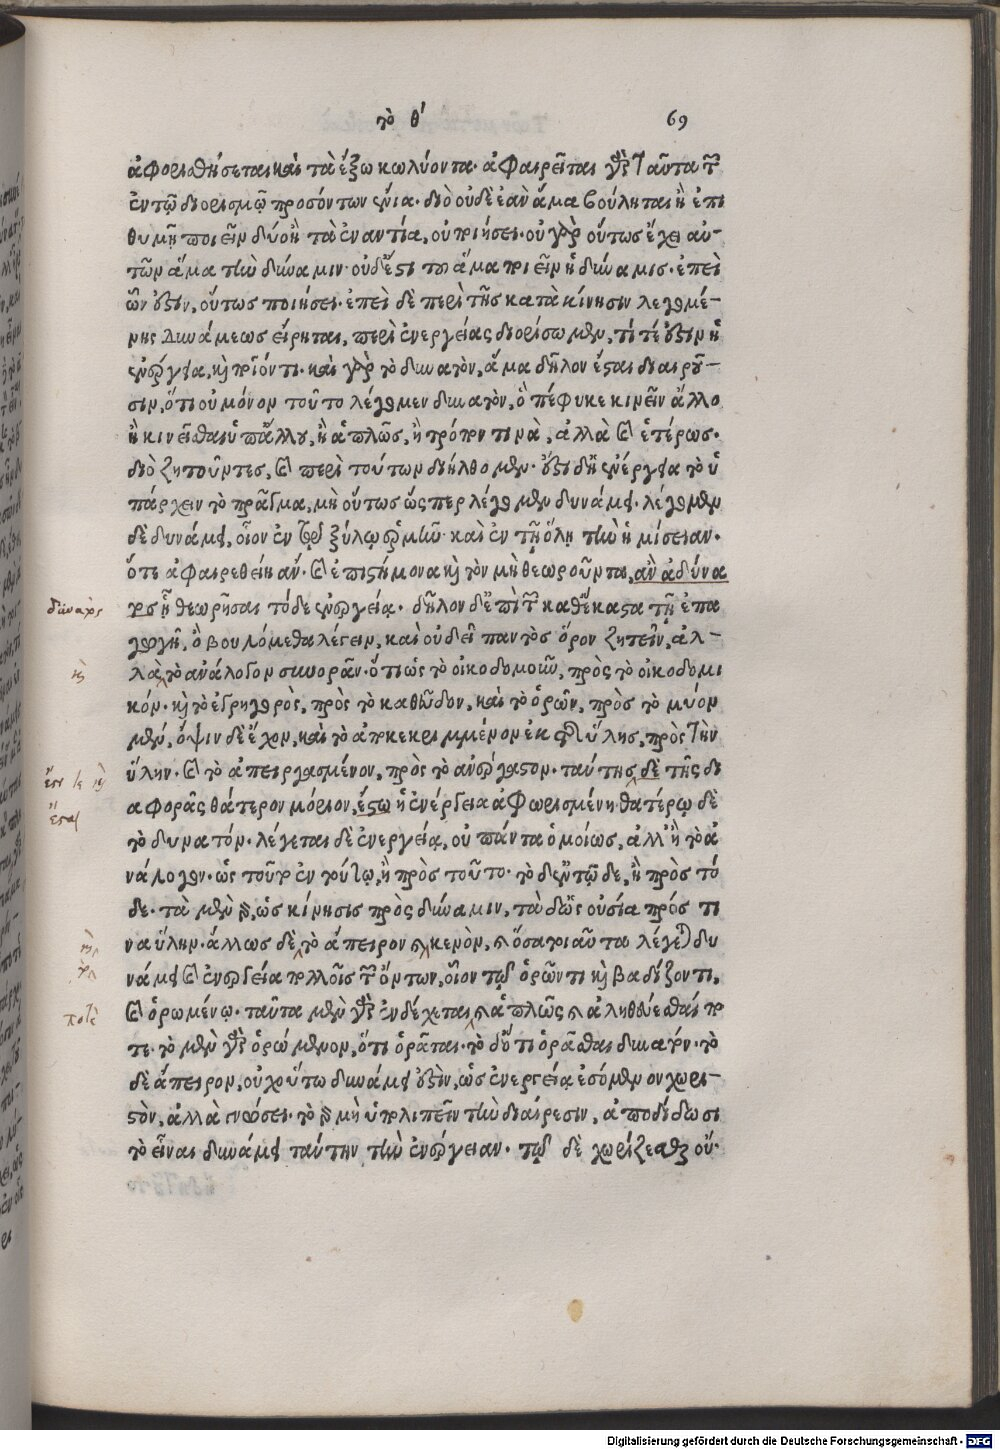 τὸ θ΄ 69
ἀφορισθήσεται καὶ τὰ ἔξω κωλύοντα· ἀφαιρεῖται γὰρ ταῦτα τῶν
ἐν τῷ διορισμῷ προσόντων ἔνια· διὸ οὐδὲ ἐὰν ἅμα βούληται ἢ ἐπι
θυμῇ ποιεῖν δύο ἢ τὰ ἐναντία, οὐ ποιήσει· οὐ γὰρ οὕτως ἔχει αὐ-
τῶν ἅμα τὴν δύναμιν· οὐδ' ἔστι τοῦ ἅμα ποιεῖν ἡ δύναμις· ἐπεὶ
ὧν ἐστὶν, οὕτως ποιήσει· ἐπεὶ δὲ περὶ τῆς κατὰ κίνησιν λεγομέ-
νης δυνάμεως εἴρηται, περὶ ἐνεργείας διορίσωμεν, τί τέ ἐστιν ἡ
ἐνέργεια, καὶ ποῖόν τι· καὶ γὰρ τὸ δυνατὸν, ἅμα δῆλον ἔσται διαιροῦ-
σιν, ὅτι οὐ μόνον τοῦτο λέγομεν δυνατὸν, ὃ πέφυκε κινεῖν ἄλλο
ἢ κινεῖσθαι ὑπ' ἄλλου, ἢ ἁπλῶς, ἢ τρόπον τινὰ, ἀλλὰ καὶ ἑτέρως·
διὸ ζητοῦντες, καὶ περὶ τούτων διήλθομεν· ἔστι δ' ἡ ἐνέργεια τὸ ὑ
πάρχειν τὸ πρᾶγμα, μὴ οὕτως ὥσπερ λέγομεν δυνάμει· λέγομεν
δὲ δυνάμει, οἷον ἐν τῷ ξύλῳ ἑρμῆν· καὶ ἐν τῇ ὅλῃ τὴν ἡμίσειαν·
ὅτι ἀφαιρεθείη ἄν· καὶ ἐπιστήμονα καὶ τὸν μὴ θεωροῦντα, ἂν ἀδύνα
τος ᾖ θεωρῆσαι τόδε ἐνεργείᾳ· δῆλον δ' ἐπὶ τῶν καθέκαστα τῇ ἐπα
γωγῇ, ὃ βουλόμεθα λέγειν, καὶ οὐ δεῖ παντὸς ὅρον ζητεῖν, ἀλ-
λὰ τὸ ἀνάλογον συνορᾶν· ὅτι ὡς τὸ οἰκοδομοῦν, πρὸς τὸ οἰκοδομι
κόν· καὶ τὸ ἐγρηγορὸς, πρὸς τὸ καθεῦδον, καὶ τὸ ὁρῶν, πρὸς τὸ μύον
μὲν, ὄψιν δὲ ἔχον, καὶ τὸ ἀποκεκριμμένον ἐκ τῆς ὕλης, πρὸς τὴν
ὕλην· καὶ τὸ ἀπειργασμένον, πρὸς τὸ ἀνέργαστον· ταύτης δὲ τῆς δι
αφορᾶς θάτερον μόριον, ἔστω ἡ ἐνέργεια ἀφωρισμένη θατέρῳ δὲ
τὸ δυνατόν· λέγεται δὲ ἐνεργείᾳ, οὐ πάντα ὁμοίως, ἀλλ' ἢ τὸ ἀ
νάλογον· ὡς τοῦτο ἐν τούτῳ, ἢ πρὸς τοῦτο· τὸ δ' ἐν τῷδε, ἢ πρὸς τό
δε· τὰ μὲν γὰρ, ὡς κίνησις πρὸς δύναμιν, τὰ δ' ὡς οὐσία πρός τι
να ὕλην· ἄλλως δὲ, τὸ ἄπειρον καὶ κενὸν, καὶ ὅσα τοιαῦτα λέγεται δυ
νάμει καὶ ἐνεργείᾳ πολλοῖς τῶν ὄντων, οἷον τῷ ὁρῶντι καὶ βαδίζοντι,
καὶ ὁρωμένῳ· ταῦτα μὲν γὰρ ἐνδέχεται καὶ ἁπλῶς καὶ ἀληθεύεσθαί πο
τε· τὸ μὲν γὰρ ὁρώμενον, ὅτι ὁρᾶται· τὸ δ' ὅτι ὁρᾶσθαι δυνατόν· τὸ
δὲ ἄπειρον, οὐχ οὕτω δυνάμει ἐστὶν, ὡς ἐνεργείᾳ ἐσόμενον χωρι-
στὸν, ἀλλὰ γνώσει· τὸ γὰρ μὴ ὑπολιπεῖν τὴν διαίρεσιν, ἀποδίδωσι
τὸ εἶναι δυνάμει ταύτην τὴν ἐνέργειαν· τῷ δὲ χωρίζεσθαι οὔ·
δυνατὸς
καὶ
ἔσται
καὶ
ποτὲ
Digitalisierung gefördert durch die Deutsche Forschungsgemeinschaft - DFG